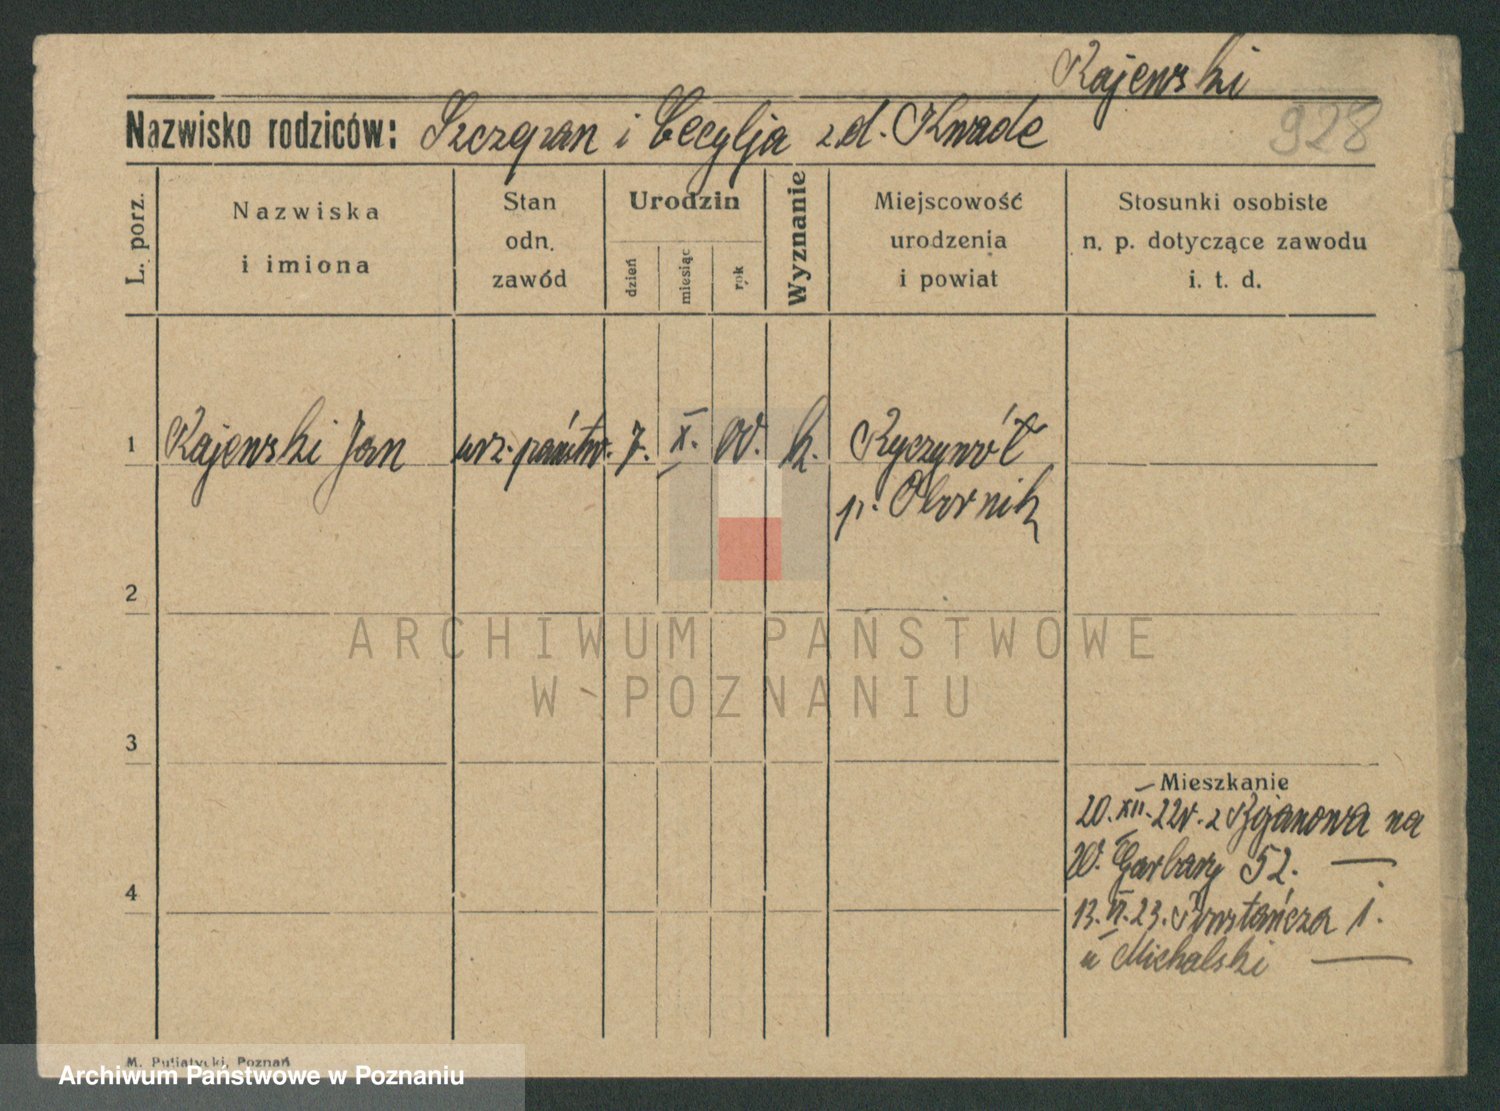 Rajewski
Nazwisko rodziców: Szczepan i Cecylja zd. Kwade
928
L. porz.
Nazwiska
i imiona
Stan
odn.
zawód
Urodzin
dzień
miesiąc
rok
Wyznanie
Miejscowość
urodzenia
i powiat
Stosunki osobiste
n. p. dotyczące zawodu
i. t. d.
1 Rajewski Jan urz. państw. 7. X. 00. k. Ryczywół
p. Obornik
2
ARCHIWUM PAŃSTWOWE
W POZNANIU
3
Mieszkanie
20. XII. 22r. z na
W. Garbary 52. —
4
13. VI. 23. 1.
u Michalski —
M. Putiatycki, Poznań
Archiwum Państwowe w Poznaniu